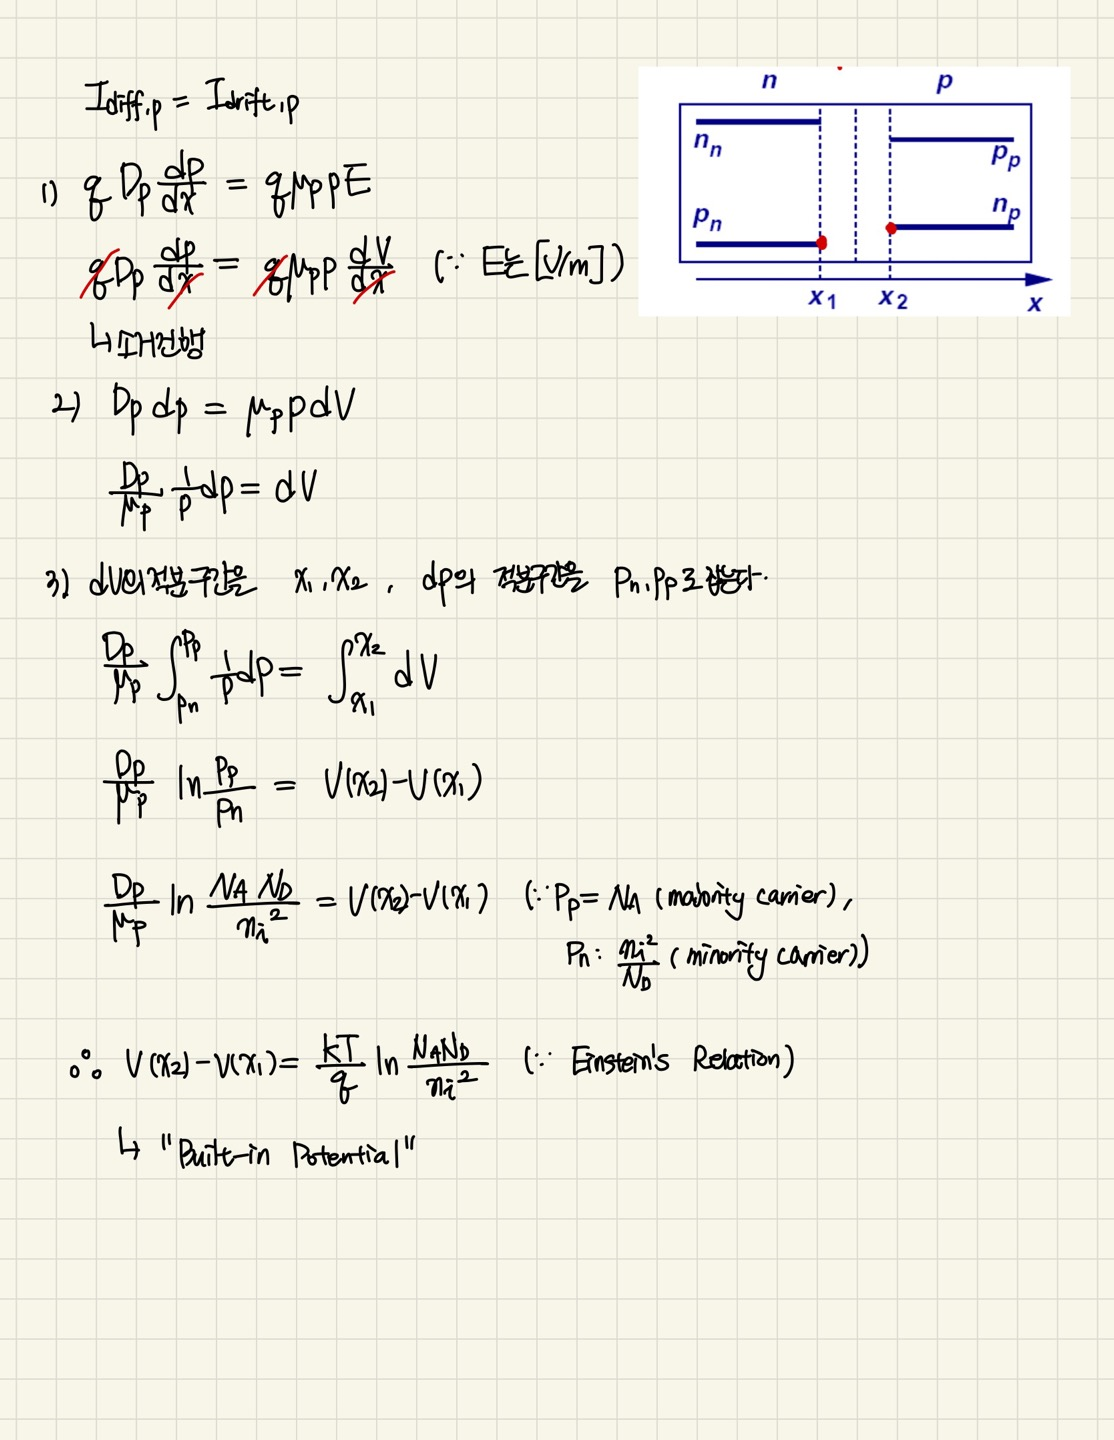 I_diff,p = I_drift,p
1) q D_p dp/dx = q μ_p p E
q D_p dp/dx = q μ_p p dV/dx (∵ E는 [V/m])
↳ 소거진행
2) D_p dp = μ_p p dV
D_p/μ_p 1/p dp = dV
3) dV의 적분구간을 x₁, x₂ , dp의 적분구간을 p_n, p_p로 잡는다.
D_p/μ_p ∫_{p_n}^{p_p} 1/p dp = ∫_{x₁}^{x₂} dV
D_p/μ_p ln p_p/p_n = V(x₂)-V(x₁)
D_p/μ_p ln N_A N_D/n_i² = V(x₂)-V(x₁) (∵ P_p = N_A (majority carrier),
P_n : n_i²/N_D (minority carrier))
∴ V(x₂)-V(x₁) = kT/q ln N_A N_D/n_i² (∵ Einstein's Relation)
↳ "Built-in Potential"
n p
n_n p_p
p_n n_p
x₁ x₂ x